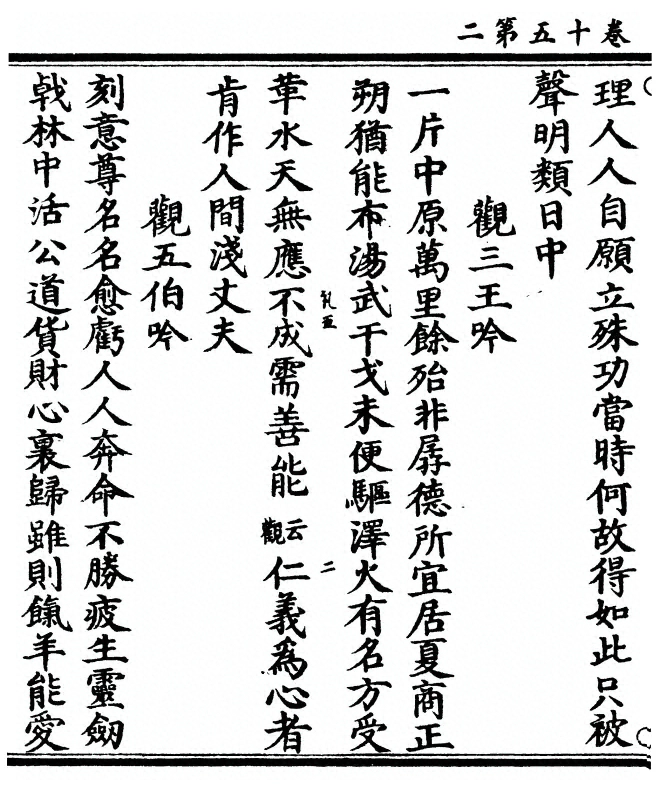 卷十五第二
理人人自願立殊功當時何故得如此只被
聲明類日中
觀三王吟
一片中原萬里餘殆非孱德所宜居夏商正
朔猶能布湯武干戈未便驅澤火有名方受
革水天無應不成需善能云觀二仁義爲心者
肯作人間淺丈夫
觀五伯吟
刻意尊名名愈虧人人奔命不勝疲生靈劒
戟林中活公道貨財心裏歸雖則餼羊能愛